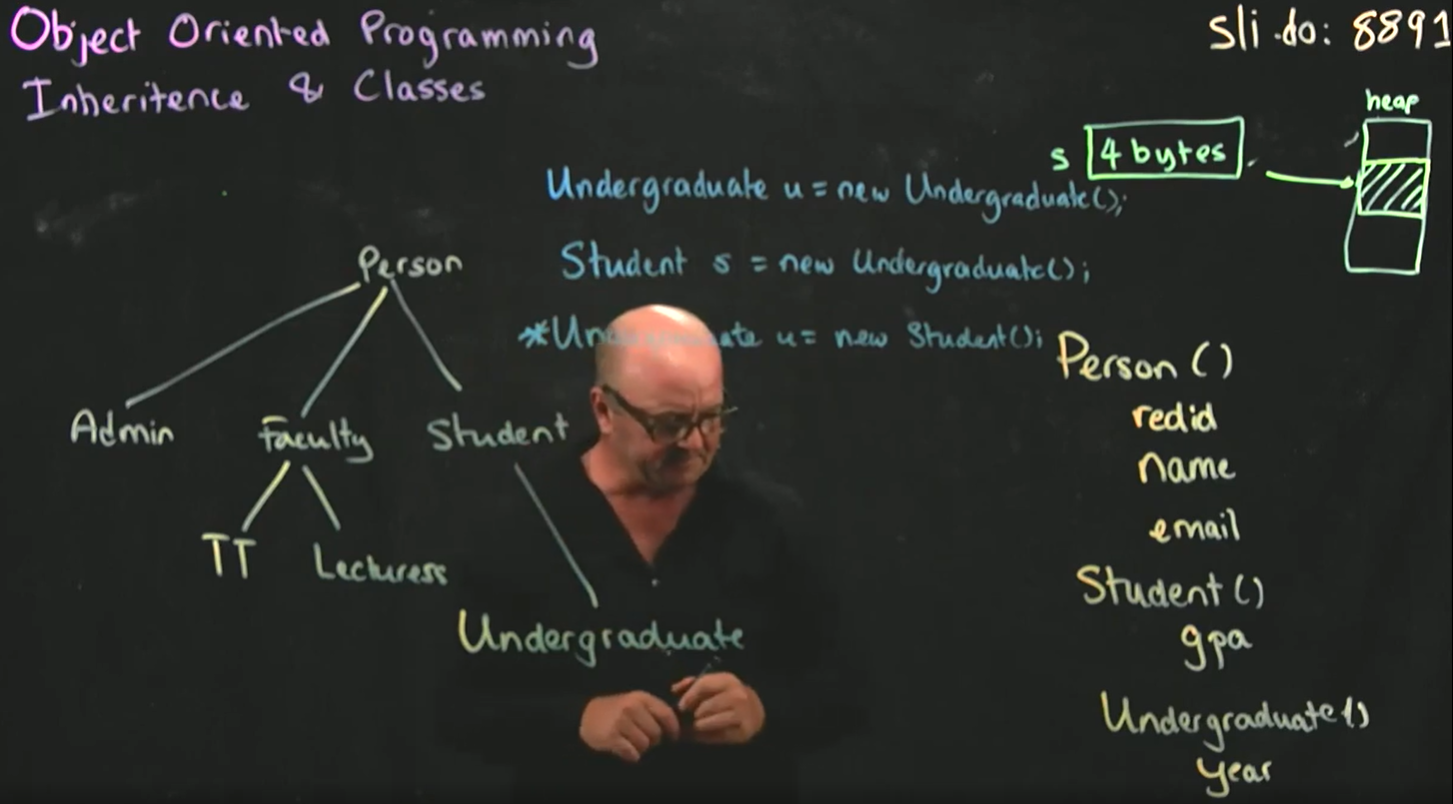 Object Oriented Programming
Inheritence & Classes
sli.do: 8891
heap
s 4 bytes
Undergraduate u = new Undergraduate();
Student s = new Undergraduate();
u = new Student();
Person
Admin Faculty Student
TT Lecturess
Undergraduate
Person ()
redid
name
email
Student ()
gpa
Undergraduate ()
year